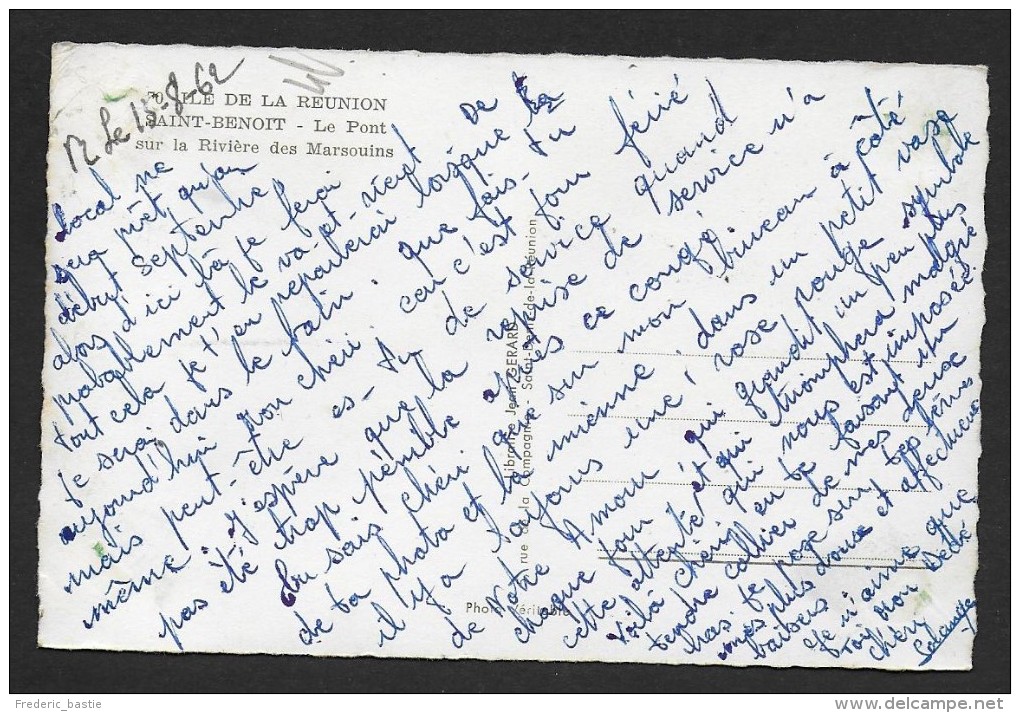 Le 15-8-62
70 ILE DE LA REUNION
SAINT-BENOIT - Le Pont
sur la Rivière des Marsouins
Local ne
sera prêt qu'au
début septembre
alors d'ici là je ferai
probablement le va-et-vient de
tout cela je t'en reparlerai lorsque
je serai dans le bain. que fais-tu
aujourd'hui mon chéri car c'est jour férié
mais peut-être es-tu de service
même. J'espère que la reprise de service n'a
pas été trop pénible après ce congé.
Tu sais chéri sur mon bureau à côté
de ta photo et la mienne, dans un petit vase
il y a toujours une rose rouge symbole
de notre Amour, qui grandit un peu plus
chaque jour et qui triomphera malgré
cette attente qui nous est imposée.
Voilà chéri, en te faisant un
tendre collier de mes deux
bras je pose sur tes lèvres
mes plus doux et affectueux
baisers
Je n'aime que
toi mon Bébé
chéri
Librairie Jean GERARD
rue de la Compagnie - Saint-Denis-de-la-Réunion
Photo Véritable
Frederic_bastie